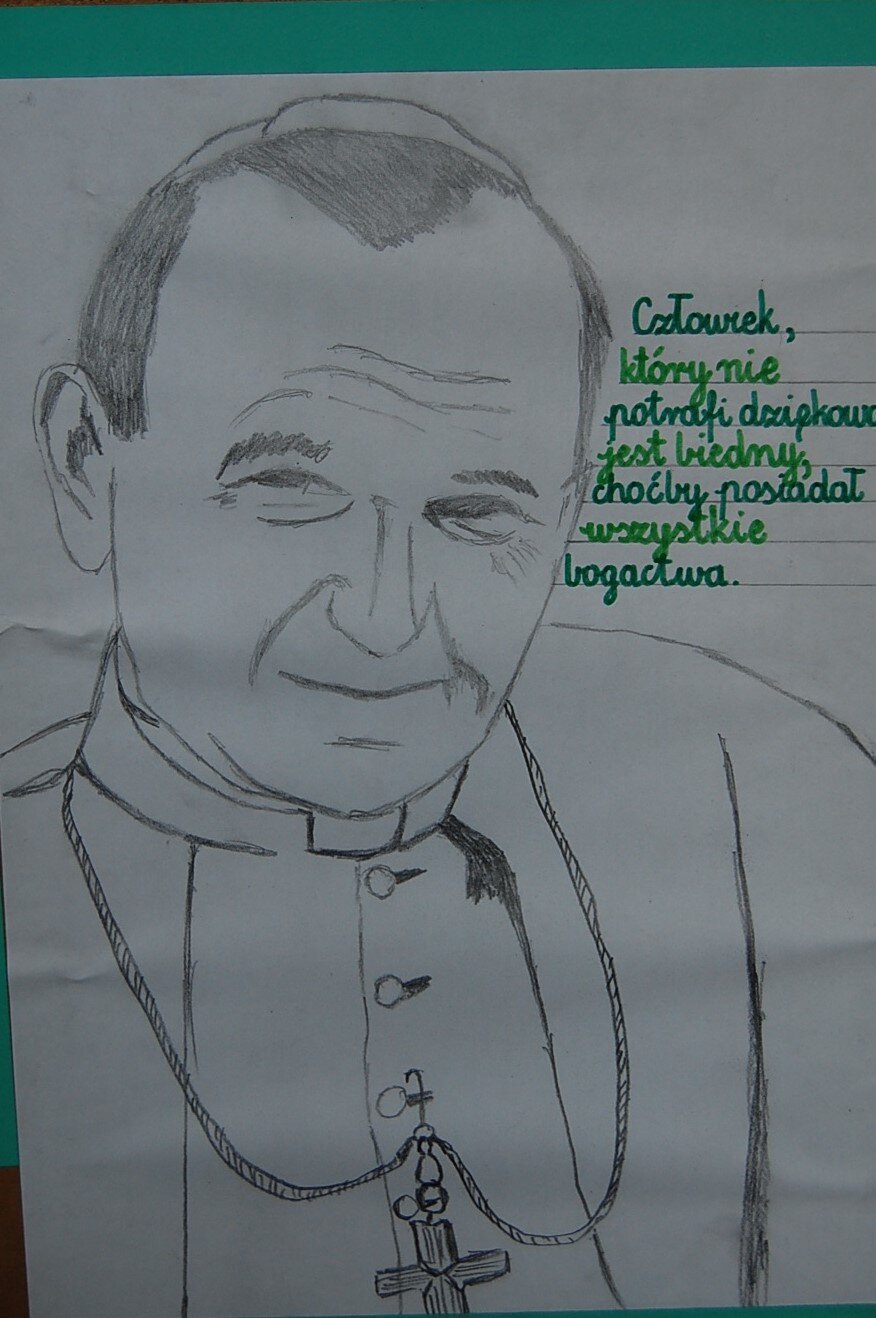 Człowiek,
który nie
potrafi dziękowa
jest biedny,
choćby posiadał
wszystkie
bogactwa.